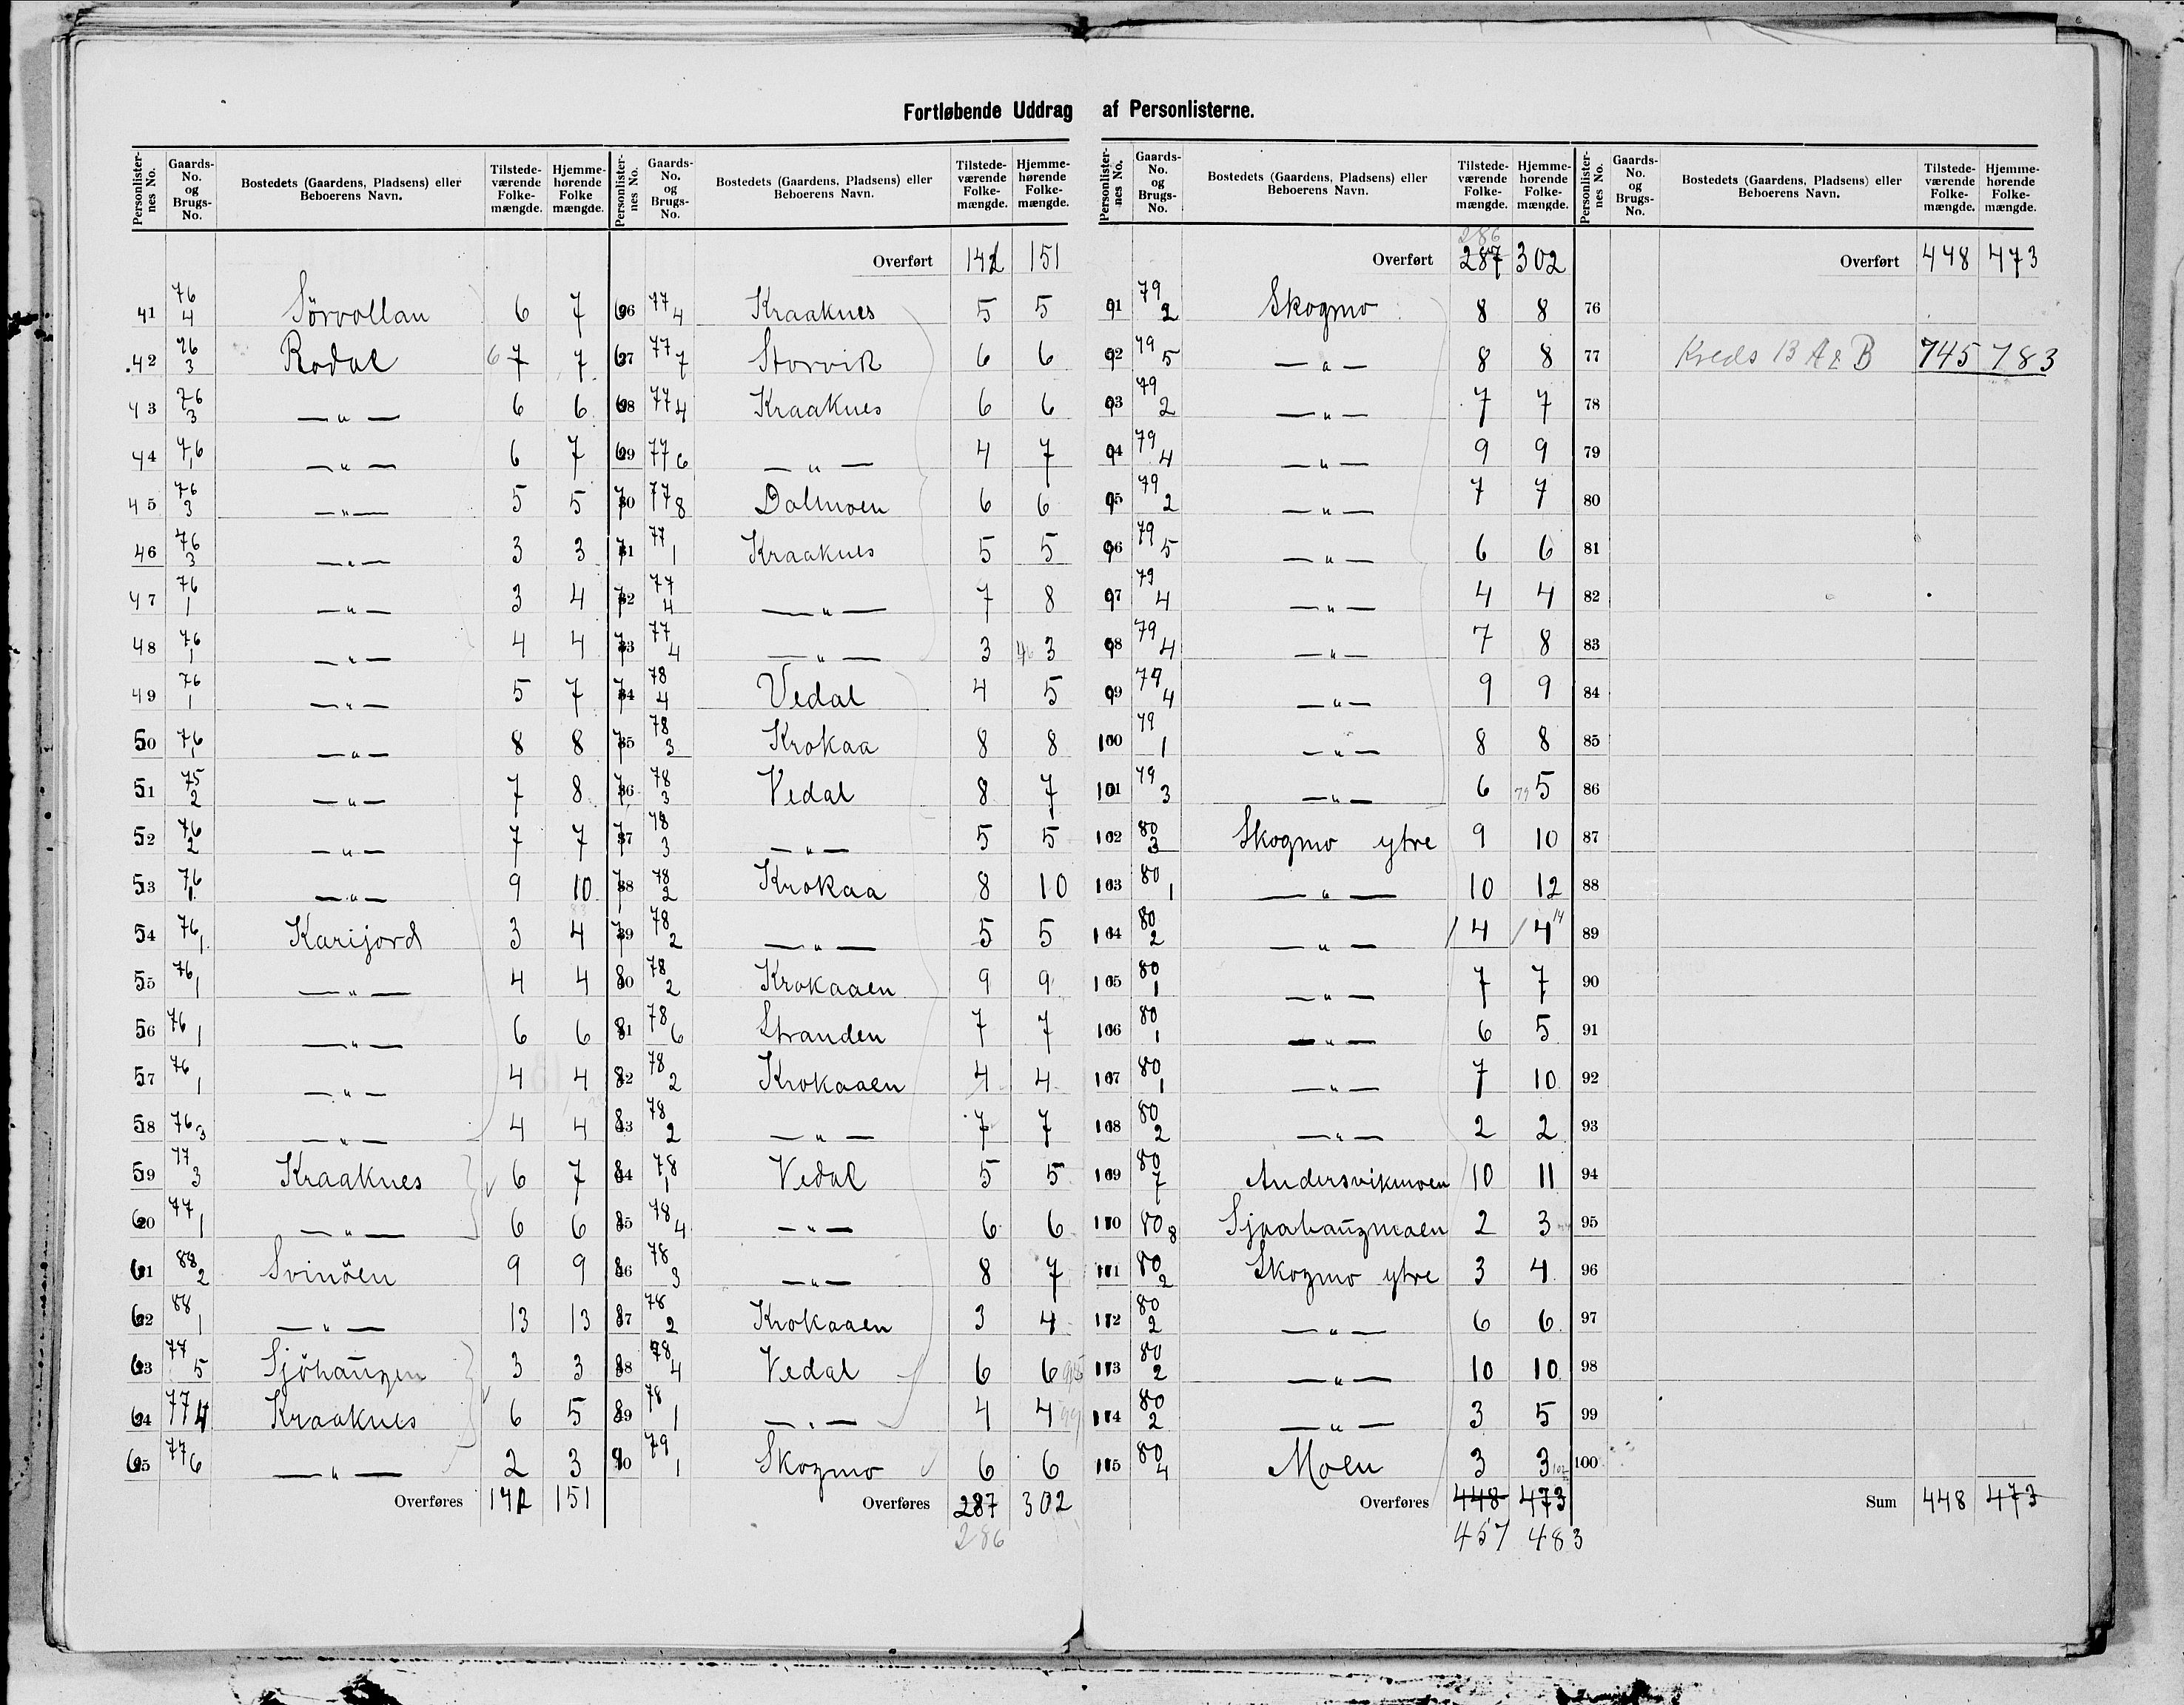 Fortløbende Uddrag af Personlisterne.
Personlister-nes No. Gaards-No. og Brugs-No. Bostedets (Gaardens, Pladsens) eller Beboerens Navn. Tilstede-værende Folke-mængde. Hjemme-hørende Folke mængde.
41 76 4 Sörvollan 6 7
42 76 3 Rodal 6 7 7
43 76 3 — " — 6 6
44 76 1 — " — 6 7
45 76 3 — " — 5 5
46 76 3 — " — 3 3
47 76 1 — " — 3 4
48 76 1 — " — 4 4
49 76 1 — " — 5 7
50 76 1 — " — 8 8
51 75 2 — " — 7 8
52 76 2 — " — 7 7
53 76 1 — " — 9 10
54 76 1 Karijord 3 4
55 76 1 — " — 4 4
56 76 1 — " — 6 6
57 76 1 — " — 4 4
58 76 3 — " — 4 4
59 77 3 Kraaknes 6 7
60 77 1 — " — 6 6
61 88 2 Svinöen 9 9
62 88 1 — " — 13 13
63 77 5 Sjöhaugen 3 3
64 77 4 Kraaknes 6 5
65 77 6 — " — 2 3
Overføres 142 151
Personlister-nes No. Gaards-No. og Brugs-No. Bostedets (Gaardens, Pladsens) eller Beboerens Navn. Tilstede-værende Folke-mængde. Hjemme-hørende Folke-mængde.
Overført 142 151
66 77 4 Kraaknes 5 5
67 77 7 Storvik 6 6
68 77 4 Kraaknes 6 6
69 77 6 — " — 4 7
70 77 8 Dalmoen 6 6
71 77 1 Kraaknes 5 5
72 77 4 — " — 7 8
73 77 4 — " — 3 46 3
74 78 4 Vedal 4 5
75 78 3 Krokaa 8 8
76 78 3 Vedal 8 7
77 78 3 — " — 5 5
78 78 2 Krokaa 8 10
79 78 2 — " — 5 5
80 78 2 Krokaaen 9 9
81 78 6 Stranden 7 7
82 78 2 Krokaaen 4 4
83 78 2 — " — 7 7
84 78 1 Vedal 5 5
85 78 4 — " — 6 6
86 78 3 — " — 8 7
87 78 2 Krokaaen 3 4
88 78 4 Vedal 6 6
89 78 1 — " — 4 4
90 79 1 Skogmo 6 6
Overføres 287 302
286
Personlister-nes No. Gaards-No. og Brugs-No. Bostedets (Gaardens, Pladsens) eller Beboerens Navn. Tilstede-værende Folke-mængde. Hjemme-hørende Folke-mængde.
286
Overført 287 302
91 79 2 Skogmo 8 8
92 79 5 — " — 8 8
93 79 2 — " — 7 7
94 79 4 — " — 9 9
95 79 2 — " — 7 7
96 79 5 — " — 6 6
97 79 4 — " — 4 4
98 79 4 — " — 7 8
99 79 4 — " — 9 9
100 79 1 — " — 8 8
101 79 3 — " — 6 79 5
102 80 3 Skogmo ytre 9 10
103 80 1 — " — 10 12
104 80 2 — " — 14 14 14
105 80 1 — " — 7 7
106 80 1 — " — 6 5
107 80 1 — " — 7 10
108 80 2 — " — 2 2
109 80 7 Andersvikmoen 10 11
110 80 8 Sjaahaugmoen 2 3
111 80 2 Skogmo ytre 3 4
112 80 2 — " — 6 6
113 80 2 — " — 10 10
114 80 2 — " — 3 5
115 80 4 Moen 3 3
Overføres 448 473
457 483
Personlister-nes No. Gaards-No. og Brugs-No. Bostedets (Gaardens, Pladsens) eller Beboerens Navn. Tilstede-værende Folke-mængde. Hjemme-hørende Folke-mængde.
Overført 448 473
76
77 Kreds 13 A & B 745 783
78
79
80
81
82
83
84
85
86
87
88
89
90
91
92
93
94
95
96
97
98
99
100
Sum 448 473